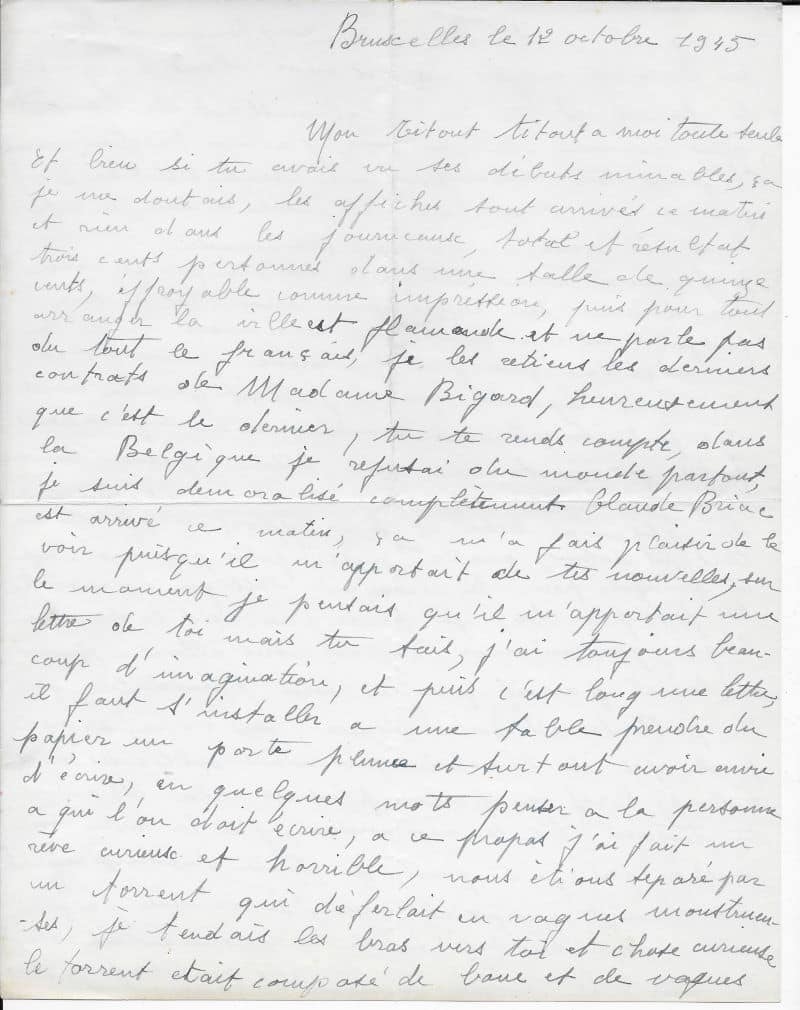 Bruxelles le 12 octobre 1945
Mon titout titout a moi toute seule
Et bien si tu avais vu ses débuts minables, ça
je me doutais, les affiches sont arrivés ce matin
et rien dans les journeaux, total et résultat
trois cents personnes dans une salle de quinze
cents, éffroyable comme impréssion, puis pour tout
arranger la ville est flamande et ne parle pas
du tout le français, je les retiens les derniers
contrats de Madame Bigard, heureusement
que c'est le dernier, tu te rends compte, dans
la Belgique je refusai du monde partout,
je suis demoralisé complètement Claude Briac
est arrivé ce matin, ça m'a fais plaisir de le
voir puisqu'il m'apportait de tes nouvelles, sur
le moment je pensais qu'il m'apportait une
lettre de toi mais tu sais, j'ai toujours beau-
coup d'imagination, et puis c'est long une lettre,
il faut s'installer a une table prendre du
papier un porte plume et surtout avoir envie
d'écrire, en quelques mots penser a la personne
a qui l'on doit écrire, a ce propos j'ai fait un
rêve curieux et horrible, nous étions separé par
un torrent qui déferlait en vagues monstrueu-
-ses, je tendais les bras vers toi et chose curieuse
le torrent etait composé de boue et de vagues